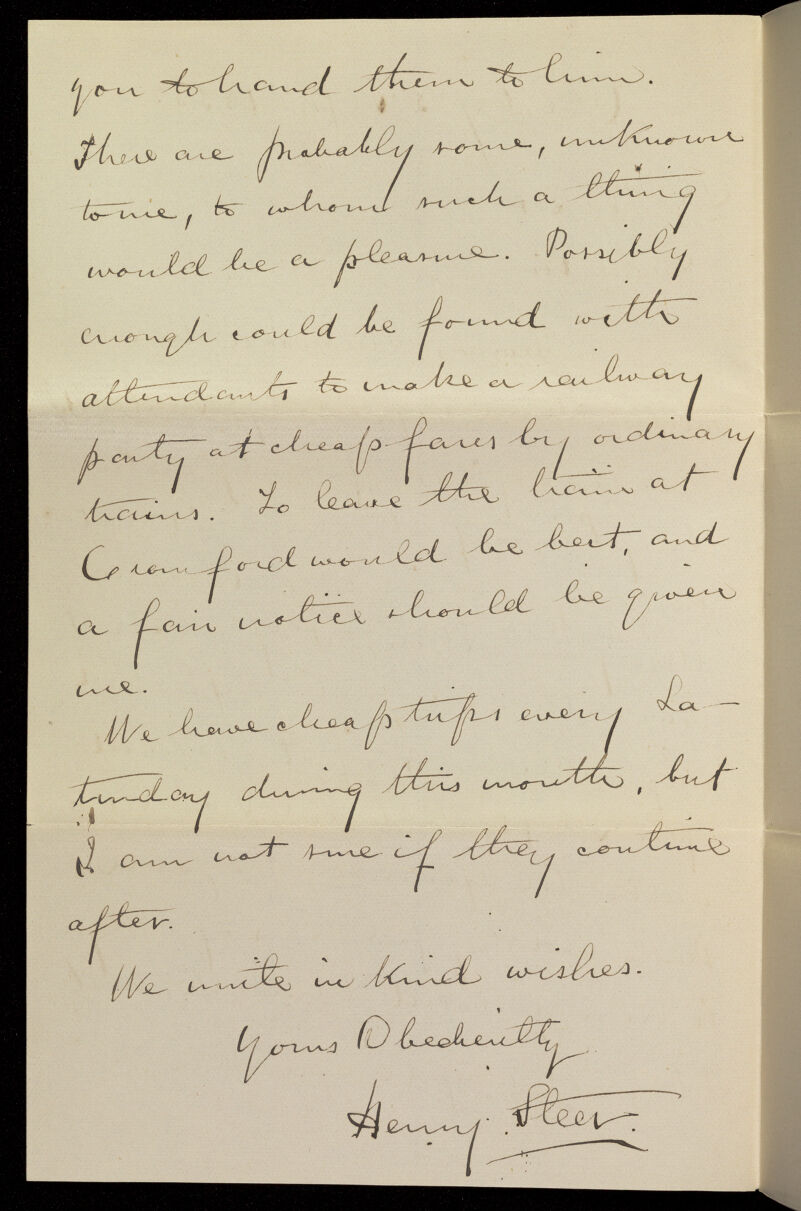 you to hand them to him.
There are probably some, unknown
to me, to whom such a thing
would be a pleasure. Possibly
enough could be found with
attendants to make a railway
party at cheap fares by ordinary
trains. To leave the train at
Cromford would be best, and
a fair notice should be given
me.
We have cheap trips every Sa-
turday during this month, but
I am not sure if they continue
after.
We unite in kind wishes.
Yours Obediently
Henry Steer.